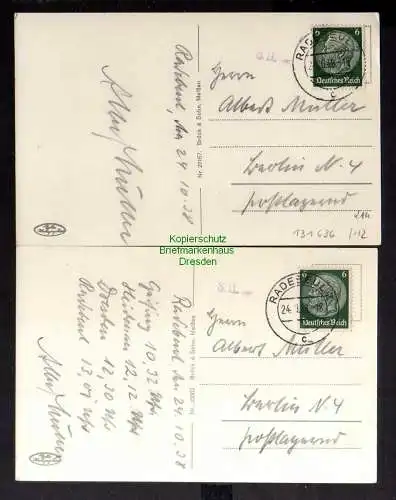 RADEBEUL
6 6
Deutsches Reich
c
Herrn
Albert Müller
Berlin N. 4
postlagernd
214
131636 1-12
Radebeul, den 24.10.38
Nr. 21167. Brück & Sohn, Meißen
Kopierschutz
Briefmarkenhaus
Dresden
RADEBEUL
24.
6 6
Deutsches Reich
c
Herrn
Albert Müller
Berlin N. 4
postlagernd
Brück & Sohn, Meißen
Radebeul, den 24.10.38
10,32 Uhr
12,12 Uhr
Dresden 12,30 Uhr
Radebeul 13,07 Uhr